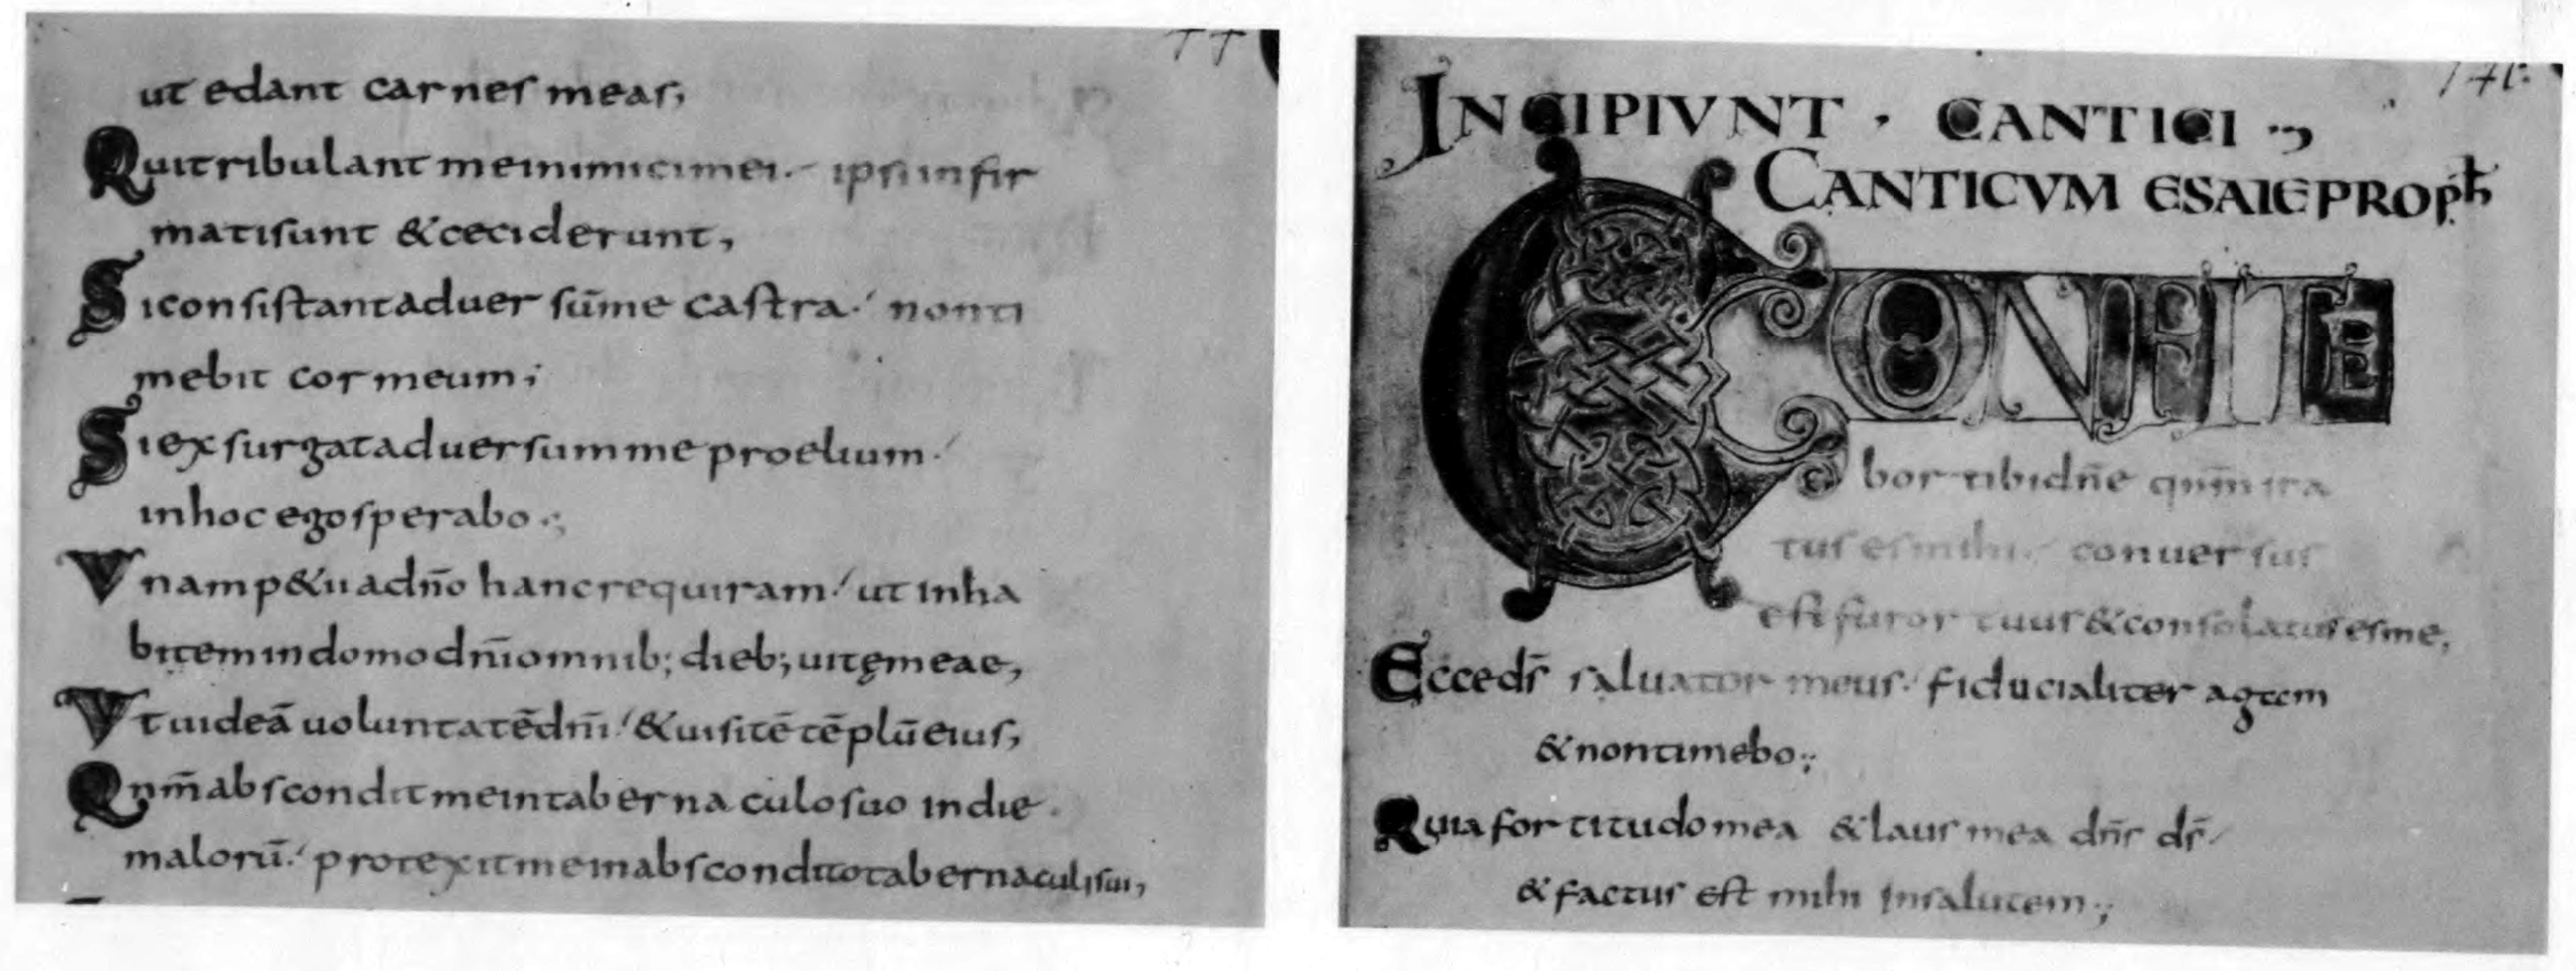 ut edant carnes meas;
Qui tribulant me inimici mei. ipsi infir
mati sunt & ceciderunt,
Si consistant aduersū me castra. non ti
mebit cor meum;
Si exsurgat aduersum me proelium.
in hoc ego sperabo.;
Vnam p&ii a dn̄o hanc requiram. ut inha
bitem in domo dn̄i omnib; dieb; uitę meae,
Vt uideā uoluntatē dn̄i. & uisitē tēplū eius,
Qnm̄ abscondit me in tabernaculo suo in die
malorū. protexit me in abscondito tabernaculi sui,
INCIPIVNT · CANTICI
CANTICVM ESAIE PROPħ
CONFITE
bor tibi dn̄e qnm̄ ira
tus es mihi. conuersus
est furor tuus & consolatus es me,
Ecce ds̄ saluator meus. fiducialiter agam
& non timebo;
Quia fortitudo mea & laus mea dn̄s ds̄.
& factus est mihi in salutem;